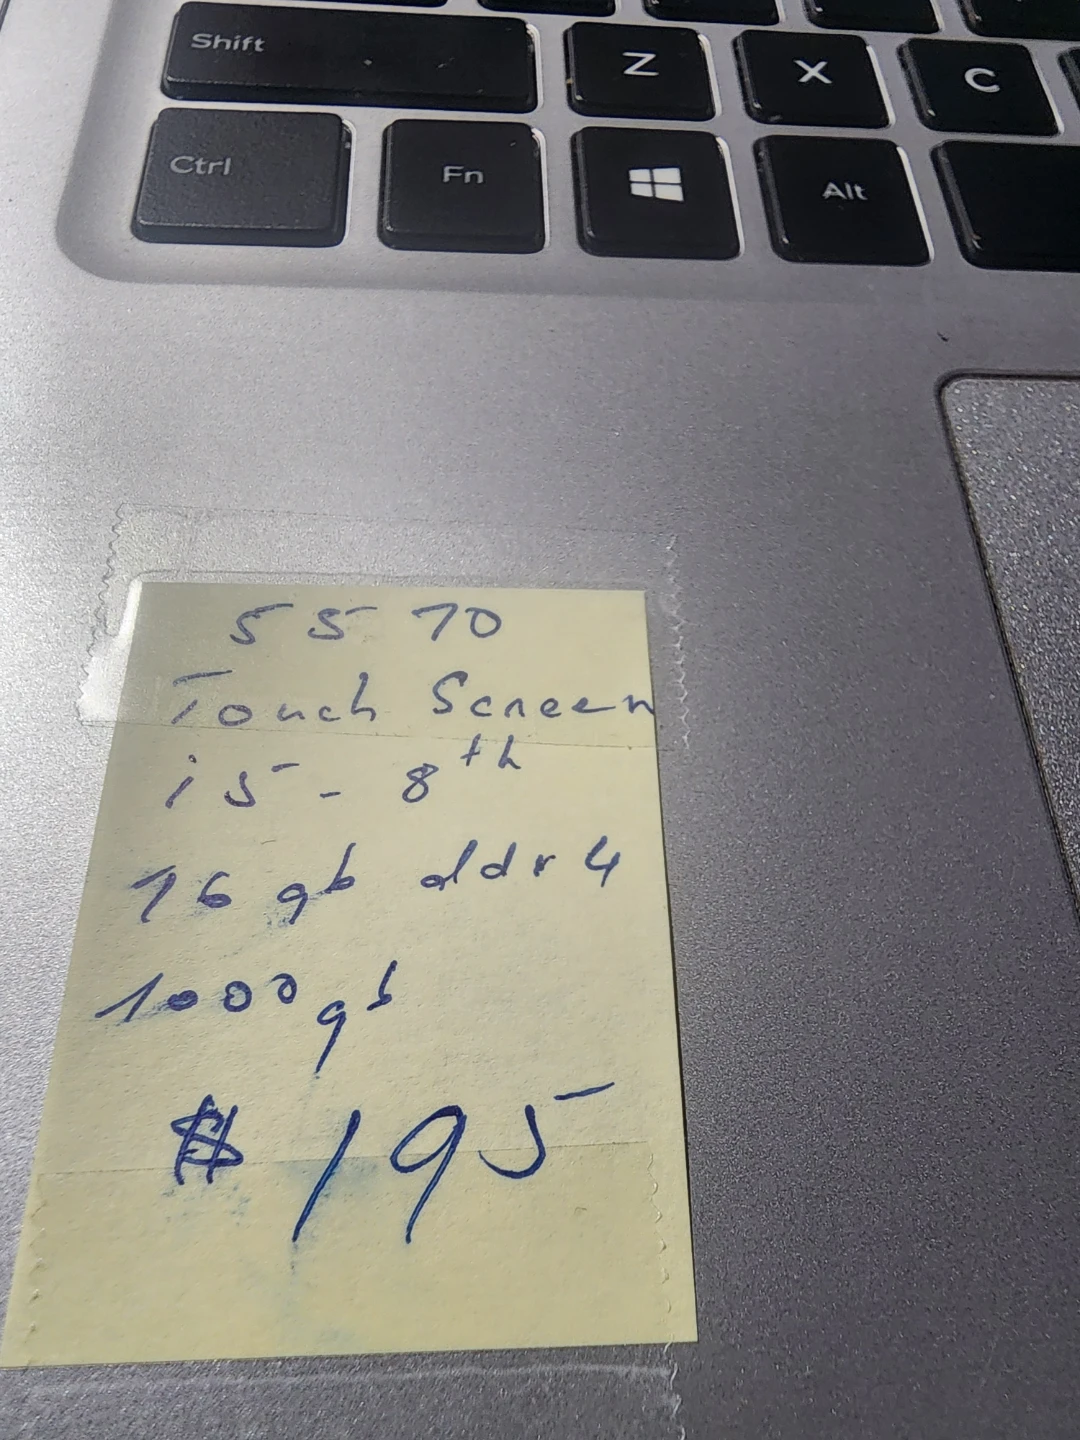 Shift Z X C
Ctrl Fn Alt
5570
Touch Screen
i5 - 8th
16 gb ddr4
1000 gb
$ 195